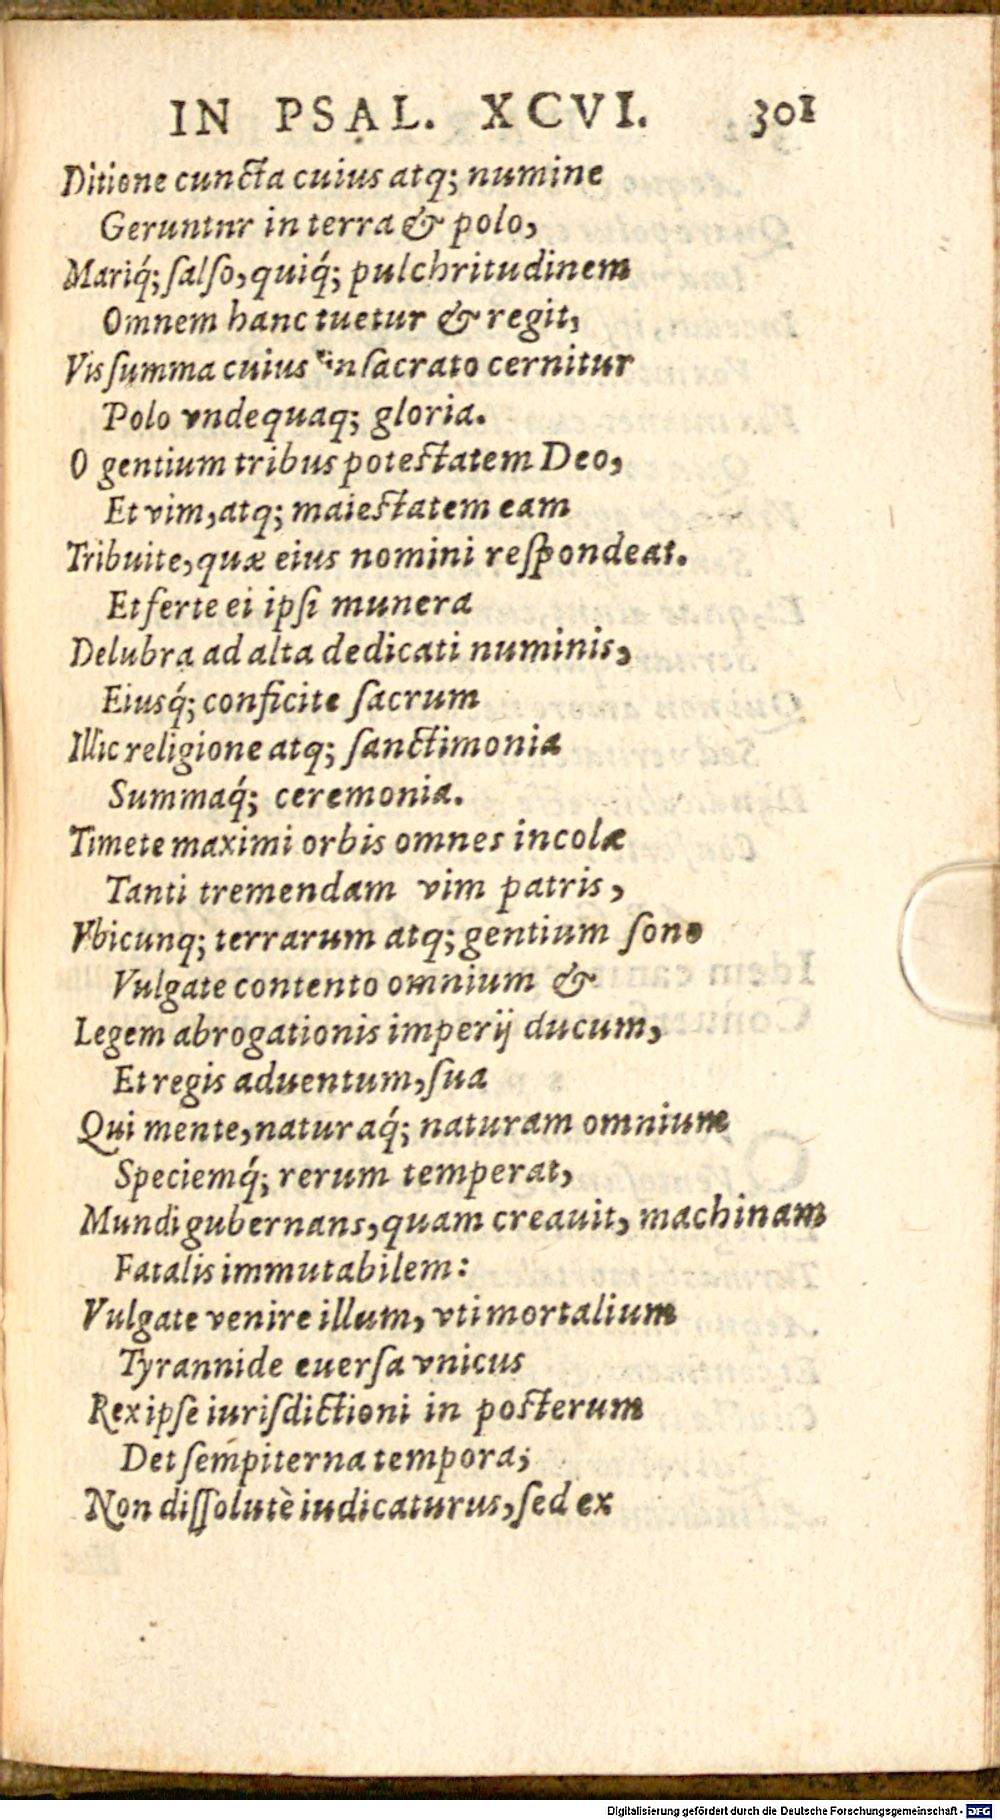 IN PSAL. XCVI. 301
Ditione cuncta cuius atq; numine
Geruntnr in terra & polo,
Mariq́; ſalſo, quiq́; pulchritudinem
Omnem hanc tuetur & regit,
Vis ſumma cuius in ſacrato cernitur
Polo vndequaq; gloria.
O gentium tribus poteſtatem Deo,
Et vim, atq; maieſtatem eam
Tribuite, quæ eius nomini reſpondeat.
Et ferte ei ipſi munera
Delubra ad alta dedicati numinis,
Eiusq́; conficite ſacrum
Illic religione atq; ſanctimonia
Summaq́; ceremonia.
Timete maximi orbis omnes incolæ
Tanti tremendam vim patris,
Vbicunq; terrarum atq; gentium ſono
Vulgate contento omnium &
Legem abrogationis imperij ducum,
Et regis aduentum, ſua
Qui mente, naturaq́; naturam omnium
Speciemq́; rerum temperat,
Mundi gubernans, quam creauit, machinam
Fatalis immutabilem:
Vulgate venire illum, vti mortalium
Tyrannide euerſa vnicus
Rex ipſe iuriſdictioni in poſterum
Det ſempiterna tempora;
Non diſſolutè iudicaturus, ſed ex
Digitalisierung gefördert durch die Deutsche Forschungsgemeinschaft - DFG